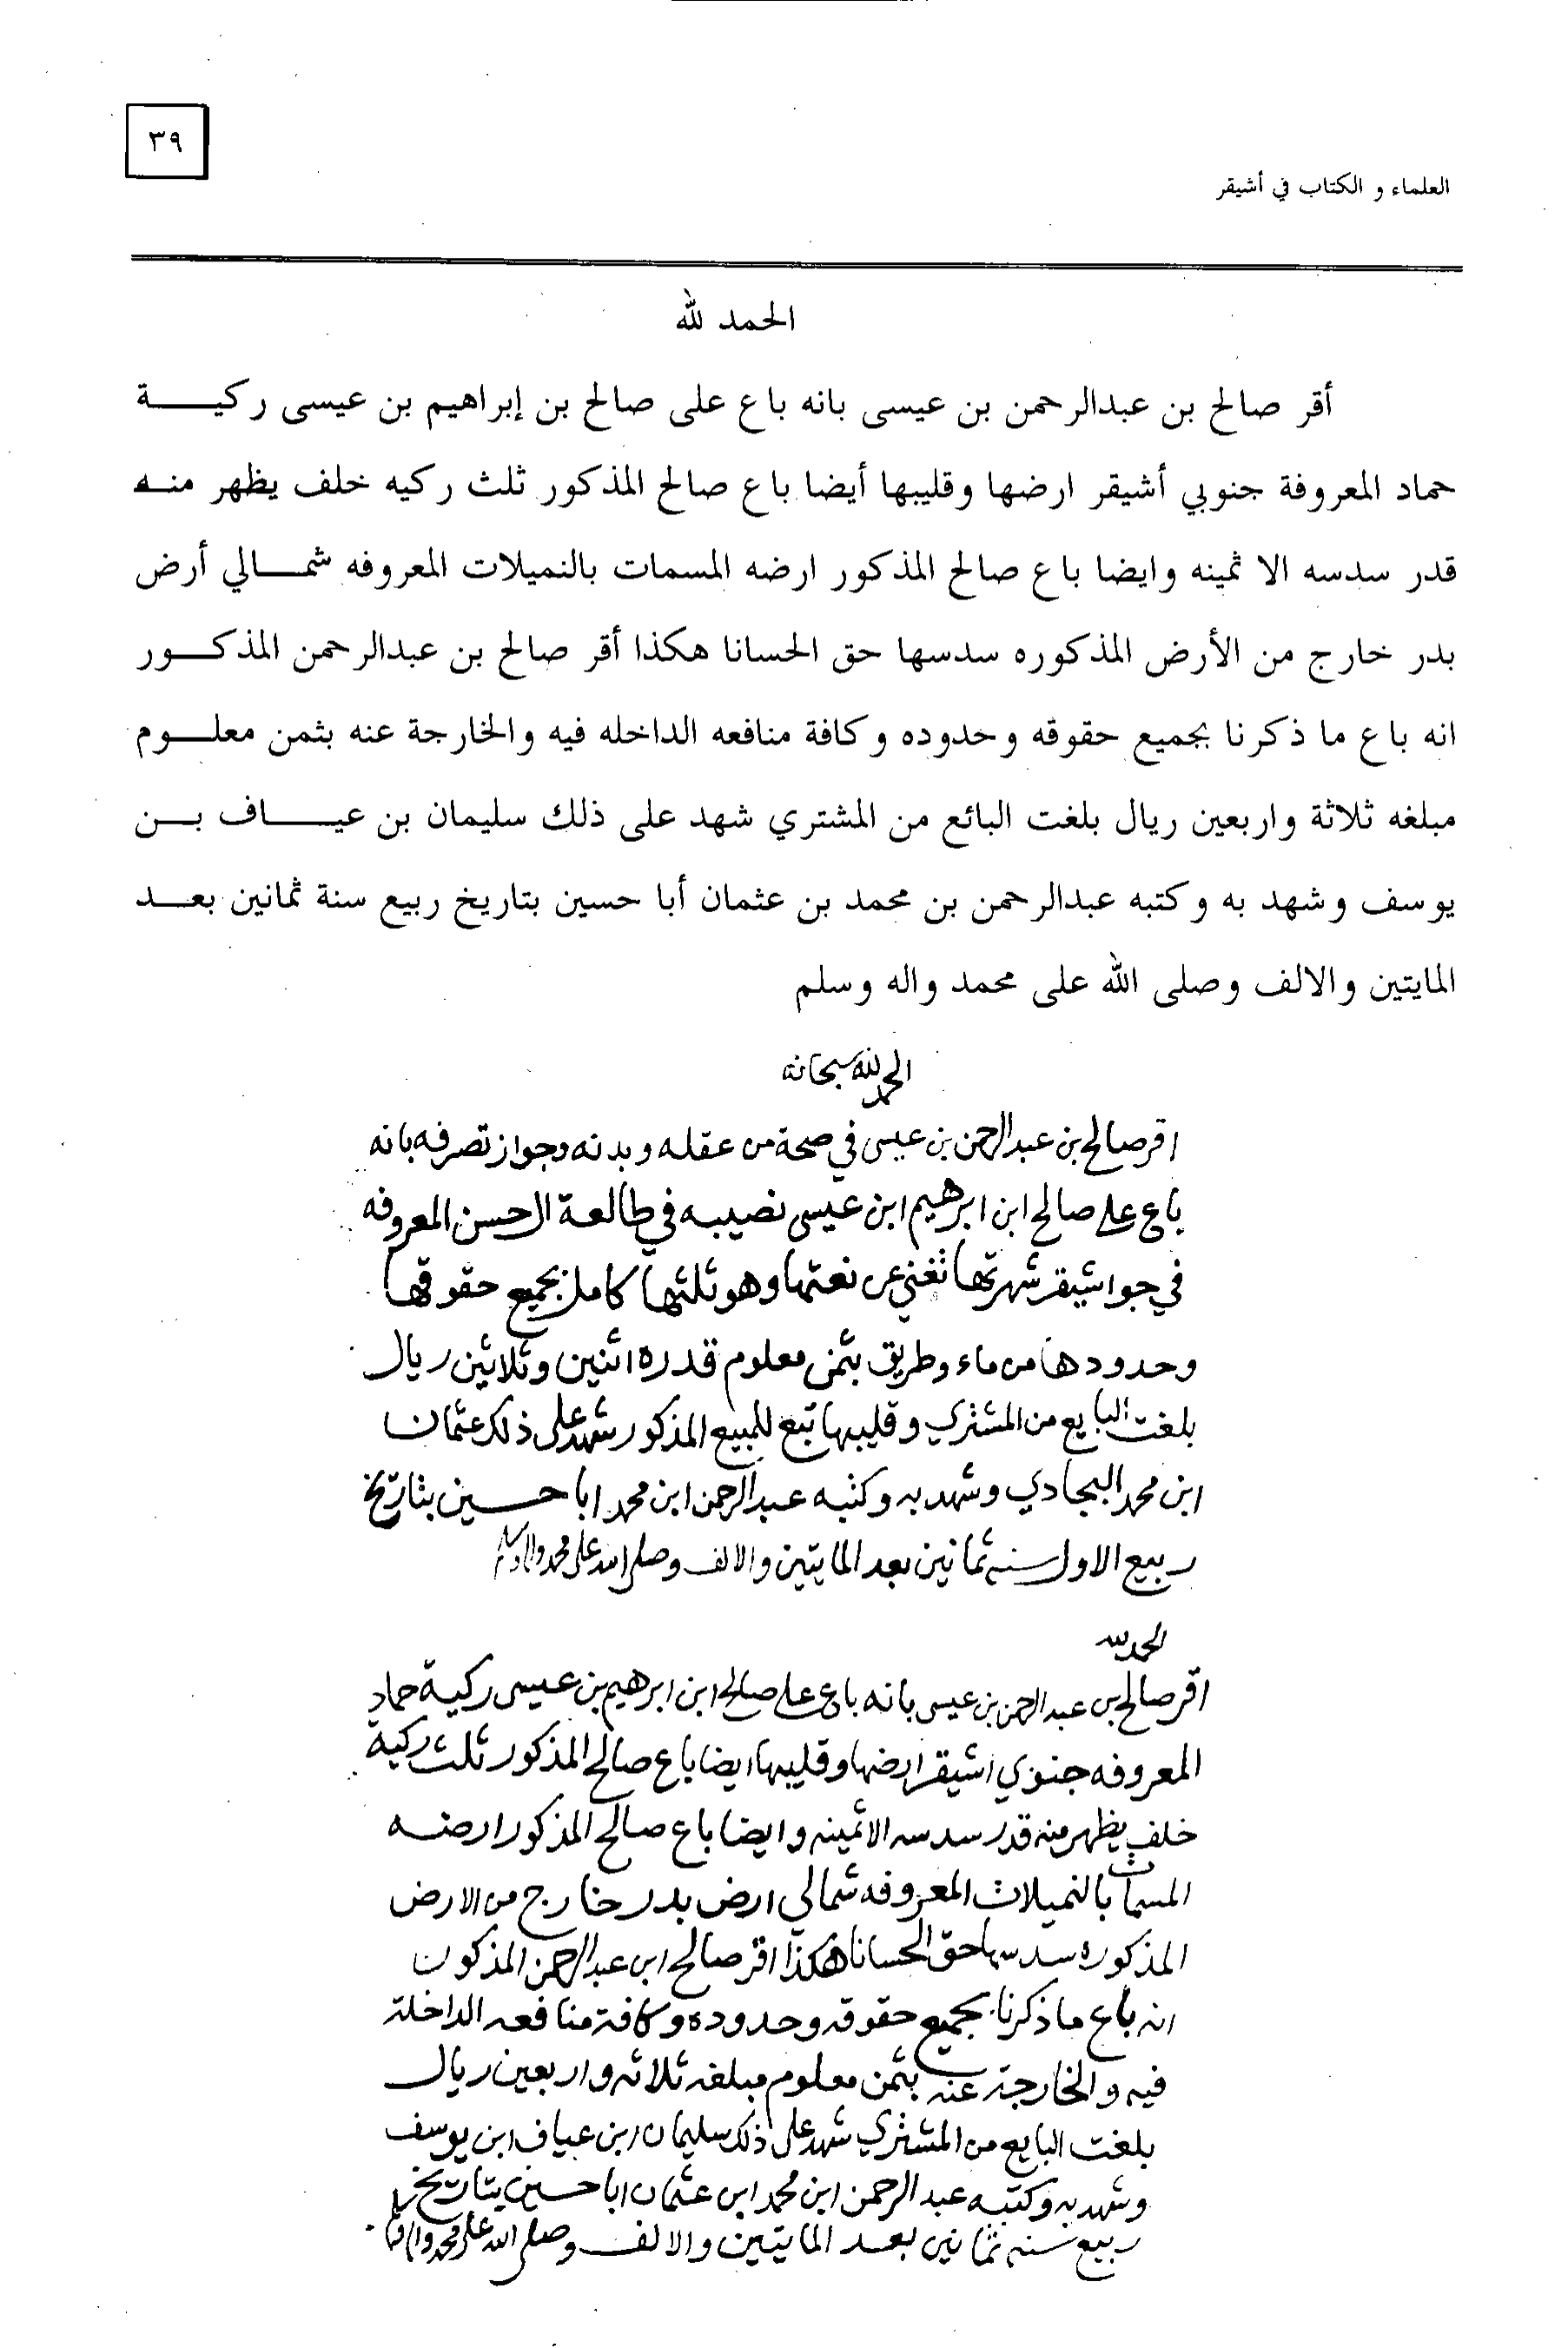 ٣٩
العلماء و الكتاب في أشيقر
الحمد لله
أقر صالح بن عبدالرحمن بن عيسى بانه باع على صالح بن إبراهيم بن عيسى ركيـــــة
حماد المعروفة جنوبي أشيقر ارضها وقليبها أيضا باع صالح المذكور ثلث ركيه خلف يظهر منـه
قدر سدسه الا ثمينه وايضا باع صالح المذكور ارضه المسمات بالنميلات المعروفه شمـــالي أرض
بدر خارج من الأرض المذكوره سدسها حق الحسانا هكذا أقر صالح بن عبدالرحمن المذكـــور
انه باع ما ذكرنا بجميع حقوقه وحدوده وكافة منافعه الداخله فيه والخارجة عنه بثمن معلـــوم
مبلغه ثلاثة واربعين ريال بلغت البائع من المشتري شهد على ذلك سليمان بن عيـــــاف بـــن
يوسف وشهد به وكتبه عبدالرحمن بن محمد بن عثمان أبا حسين بتاريخ ربيع سنة ثمانين بعـــد
المايتين والالف وصلى الله على محمد واله وسلم
الحمد لله سبحانه
اقر صالح بن عبدالرحمن بن عيسى في صحة من عقله وبدنه وجواز تصرفه بانه
باع على صالح ابن ابرهيم ابن عيسى نصيبه في طالعة ال حسن المعروفه
في جو اشيقر شهرتها تغني عن نعتها وهو ثلثها كاملا بجميع حقوقها
وحدودها من ماء وطريق بثمن معلوم قدره اثنين وثلاثين ريال
بلغت البايع من المشتري وقليبها تبع للمبيع المذكور شهد على ذلك عثمان
ابن محمد البجادي وشهد به وكتبه عبدالرحمن ابن محمد ابا حسين بتاريخ
ربيع الاول سنه ثمانين بعد المايتين والالف وصلى الله على محمد واله وسلم
الحمد لله
اقر صالح بن عبدالرحمن بن عيسى بانه باع على صالح ابن ابرهيم بن عيسى ركية حماد
المعروفه جنوبي اشيقر ارضها وقليبها ايضا باع صالح المذكور ثلث ركية
خلف يظهر منه قدر سدسه الا ثمينه وايضا باع صالح المذكور ارضه
المسمات بالنميلات المعروفه شمالي ارض بدر خارج من الارض
المذكوره سدسها حق الحسانا هكذا اقر صالح ابن عبدالرحمن المذكور
انه باع ما ذكرنا بجميع حقوقه وحدوده وكافة منافعه الداخلة
فيه والخارجة عنه بثمن معلوم مبلغه ثلاثه واربعين ريال
بلغت البايع من المشتري شهد على ذلك سليمان ابن عياف ابن يوسف
وشهد به وكتبه عبدالرحمن ابن محمد ابن عثمان ابا حسين بتاريخ
ربيع سنه ثمانين بعد المايتين والالف وصلى الله على محمد واله